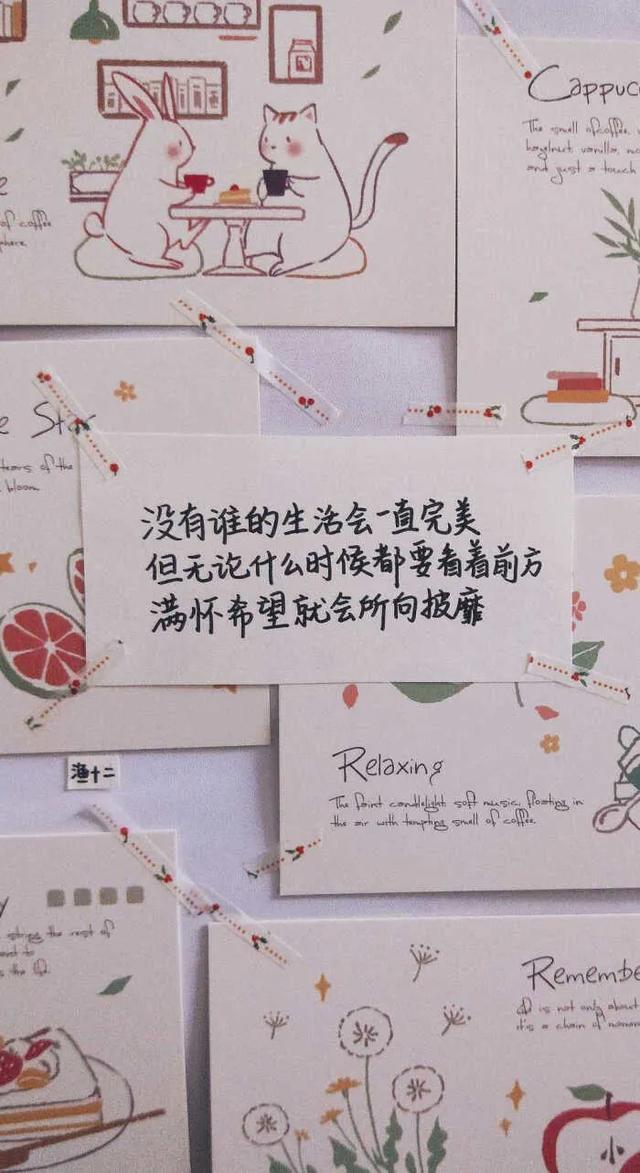 Cappuc
The smell of coffee,
hazelnut vanilla,
and just a touch
of coffee
phere.
e Star
tears of the
bloom.
没有谁的生活会一直完美
但无论什么时候都要看着前方
满怀希望就会所向披靡
渔十二
Relaxing
The faint candlelight soft music, floating in
the air with tempting smell of coffee.
y
string the rest of
Remembe
is not only about
it's a chain of